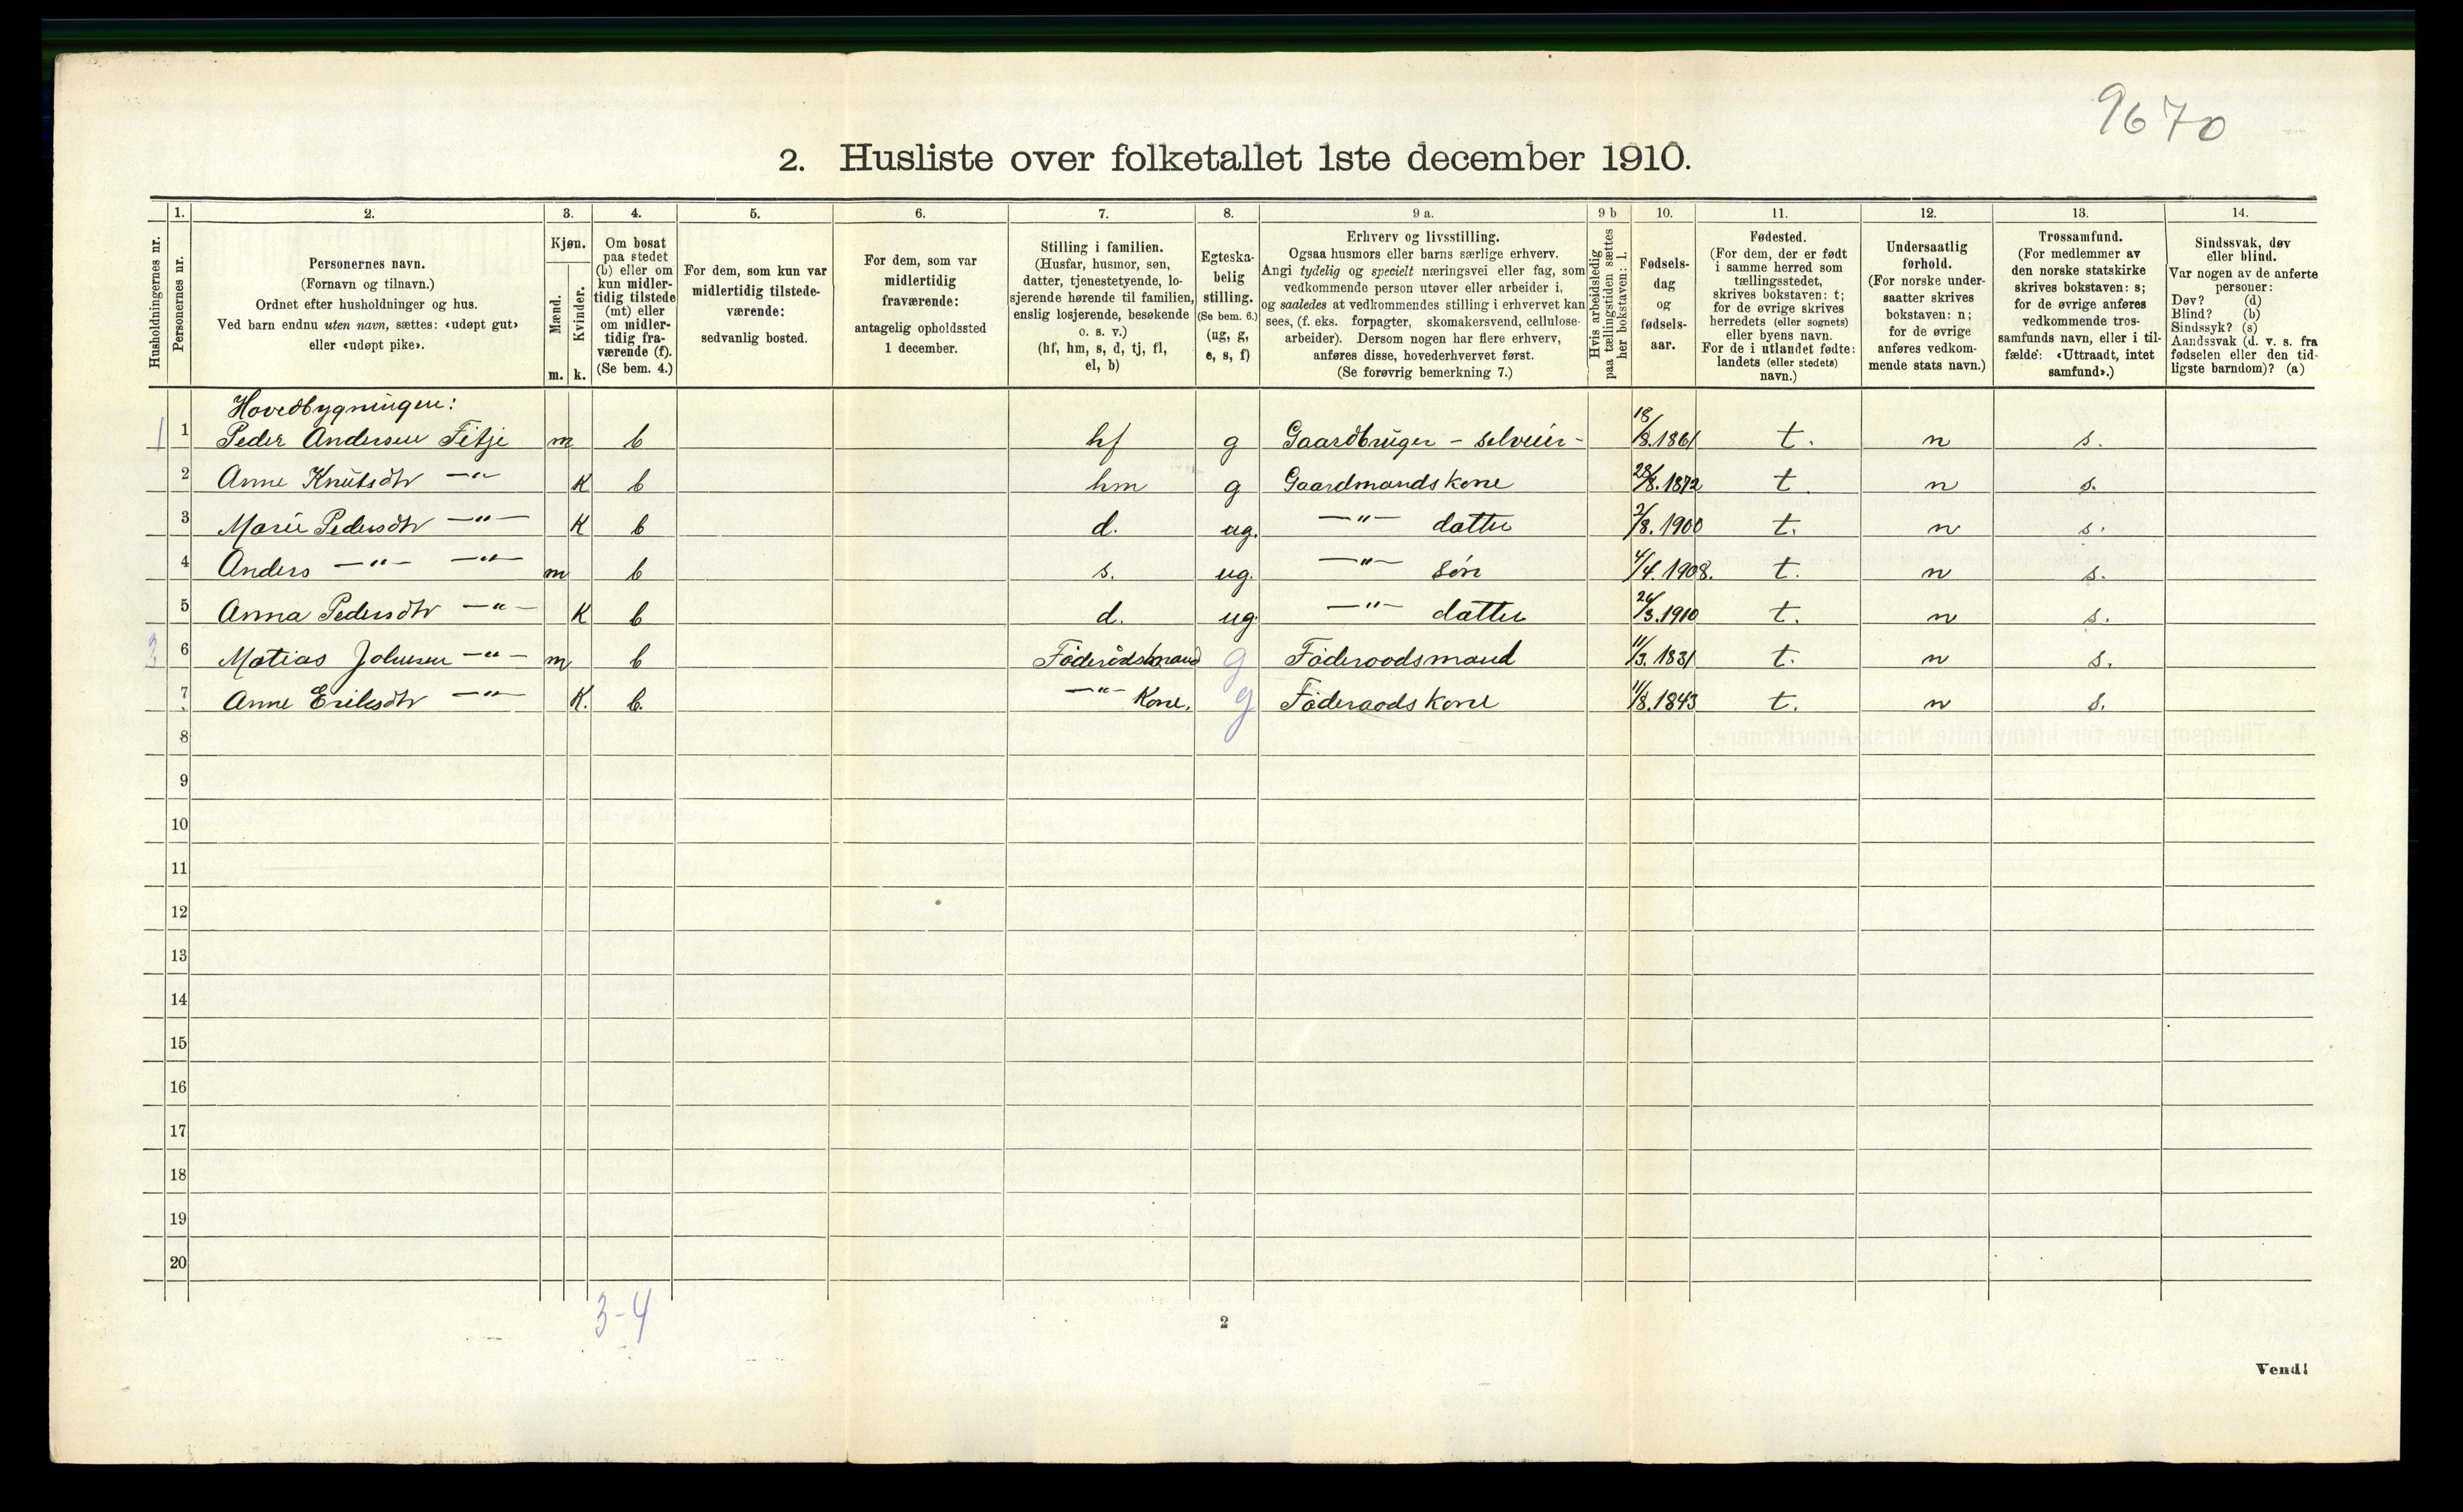 9670
2. Husliste over folketallet 1ste december 1910.
Husholdningernes nr.
1.
Personernes nr.
2.
Personernes navn.
(Fornavn og tilnavn.)
Ordnet efter husholdninger og hus.
Ved barn endnu uten navn, sættes: «udøpt gut»
eller «udøpt pike».
3.
Kjøn.
Mænd.
Kvinder.
m. k.
4.
Om bosat
paa stedet
(b) eller om
kun midler-
tidig tilstede
(mt) eller
om midler-
tidig fra-
værende (f).
(Se bem. 4.)
5.
For dem, som kun var
midlertidig tilstede-
værende:
sedvanlig bosted.
6.
For dem, som var
midlertidig
fraværende:
antagelig opholdssted
1 december.
7.
Stilling i familien.
(Husfar, husmor, søn,
datter, tjenestetyende, lo-
sjerende hørende til familien,
enslig losjerende, besøkende
o. s. v.)
(hf, hm, s, d, tj, fl,
el, b)
8.
Egteska-
belig
stilling.
(Se bem. 6.)
(ug, g,
e, s, f)
9 a.
Erhverv og livsstilling.
Ogsaa husmors eller barns særlige erhverv.
Angi tydelig og specielt næringsvei eller fag, som
vedkommende person utøver eller arbeider i,
og saaledes at vedkommendes stilling i erhvervet kan
sees, (f. eks. forpagter, skomakersvend, cellulose-
arbeider). Dersom nogen har flere erhverv,
anføres disse, hovederhvervet først.
(Se forøvrig bemerkning 7.)
9 b
Hvis arbeidsledig
paa tællingstiden sættes
her bokstaven: l.
10.
Fødsels-
dag
og
fødsels-
aar.
11.
Fødested.
(For dem, der er født
i samme herred som
tællingsstedet,
skrives bokstaven: t;
for de øvrige skrives
herredets (eller sognets)
eller byens navn.
For de i utlandet fødte:
landets (eller stedets)
navn.)
12.
Undersaatlig
forhold.
(For norske under-
saatter skrives
bokstaven: n;
for de øvrige
anføres vedkom-
mende stats navn.)
13.
Trossamfund.
(For medlemmer av
den norske statskirke
skrives bokstaven: s;
for de øvrige anføres
vedkommende tros-
samfunds navn, eller i til-
fælde: «Uttraadt, intet
samfund».)
14.
Sindssvak, døv
eller blind.
Var nogen av de anførte
personer:
Døv? (d)
Blind? (b)
Sindssyk? (s)
Aandssvak (d. v. s. fra
fødselen eller den tid-
ligste barndom)? (a)
Hovedbygningen:
1 1 Peder Andersen Fitje m b hf g Gaardbruger - selveier - 18/8.1861 t. n s.
2 Anne Knutsdtr —"— K b hm g Gaardmandskone 28/8.1872 t. n s.
3 Marie Pedersdtr —"— K b d. ug. —"— datter 2/8.1900 t. n s.
4 Anders —"— —"— m b s. ug. —"— søn 4/4.1908. t. n s.
5 Anna Pedersdtr —"— K b d. ug. —"— datter 26/3.1910 t. n s.
3 6 Matias Johnsen —"— m b Föderådsmand g Föderaadsmand 11/3.1831 t. n s.
7 Anne Eriksdtr —"— K. b. —"— Kone. g Föderaadskone 11/8.1843 t. n s.
8
9
10
11
12
13
14
15
16
17
18
19
20
3-4
2
Vend!